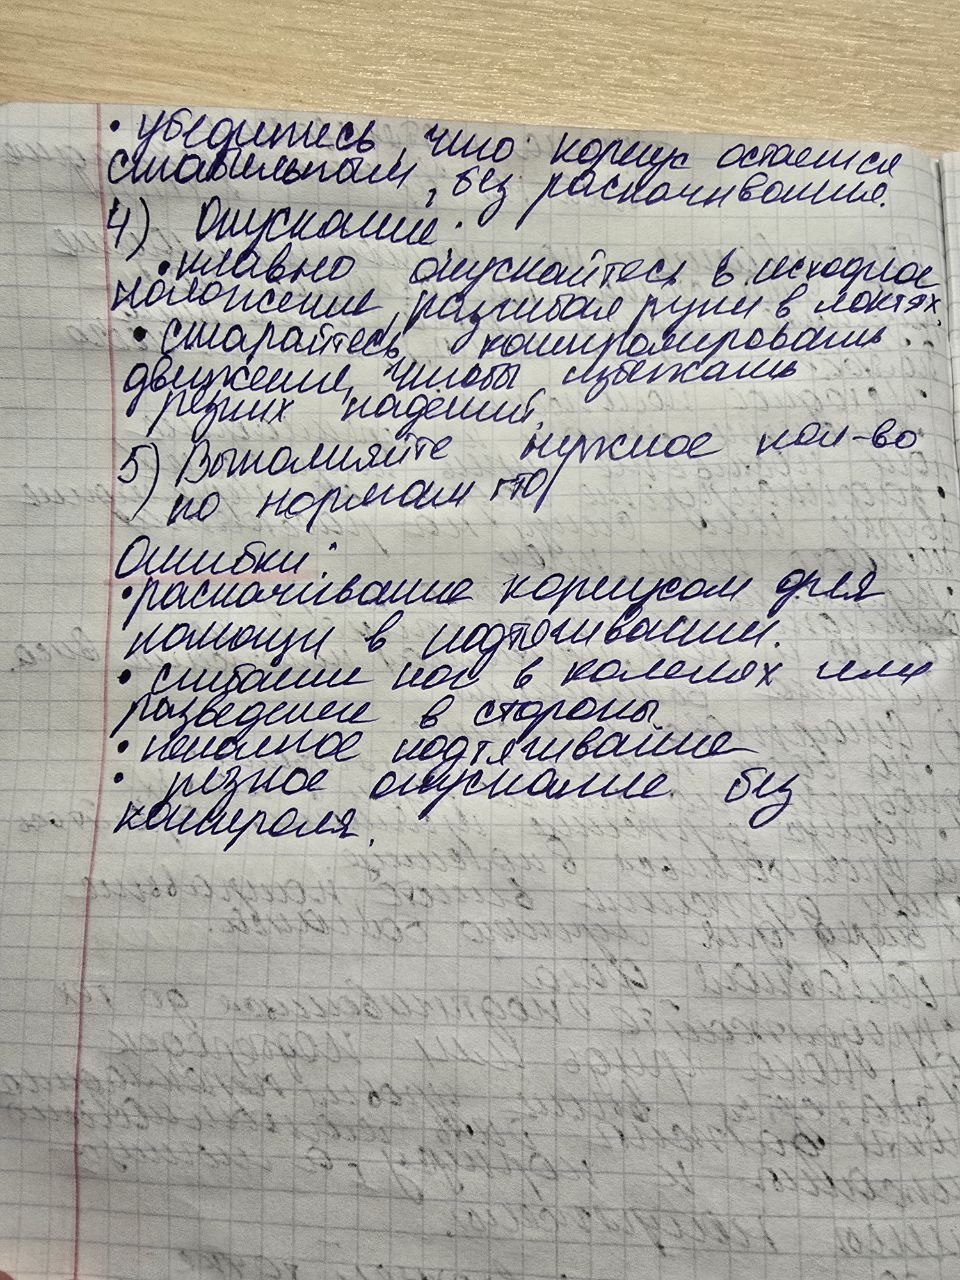 • убедитесь, что корпус остается
стабильным, без раскачивания.
4) Опускание.
• плавно опускайтесь в исходное
положение, разгибая руки в локтях.
• старайтесь контролировать
движение, чтобы избежать
резких падений.
5) Выполняйте нужное кол-во
по нормам гто
Ошибки:
• раскачивание корпусом для
помощи в подтягивании.
• сгибание ног в коленях или
разведение в стороны
• неполное подтягивание
• резкое опускание без
контроля.